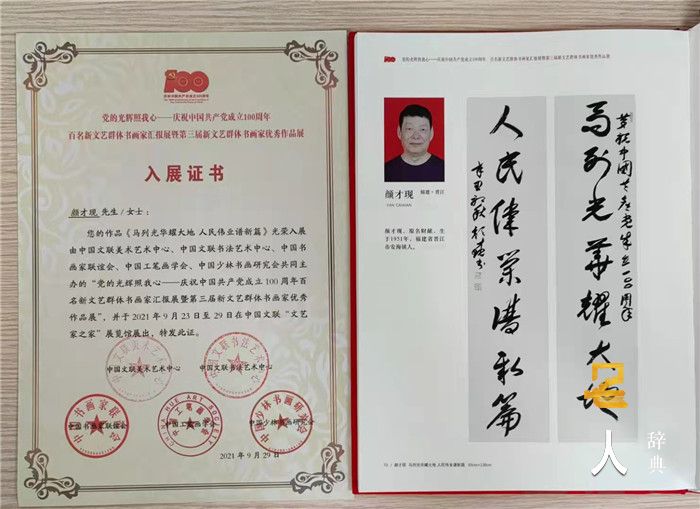 100
党的光辉照我心——庆祝中国共产党成立100周年
百名新文艺群体书画家汇报展暨第三届新文艺群体书画家优秀作品展
入展证书
颜才现 先生/女士：
您的作品《马列光华耀大地 人民伟业谱新篇》光荣入展
由中国文联美术艺术中心、中国文联书法艺术中心、中国书画
家联谊会、中国工笔画学会、中国少林书画研究会共同主
办的“党的光辉照我心——庆祝中国共产党成立100周年百
名新文艺群体书画家汇报展暨第三届新文艺群体书画家优秀
作品展”，并于2021年9月23日至29日在中国文联“文艺
家之家”展览馆展出，特发此证。
中国文联美术艺术中心
中国文联书法艺术中心
中国书画家联谊会
中国工笔画学会
中国少林书画研究会
2021年9月29日
100
党的光辉照我心——庆祝中国共产党成立100周年 百名新文艺群体书画家汇报展暨第三届新文艺群体书画家优秀作品展
颜才现
福建·晋江
YAN CAIXIAN
颜才现，原名财献，生
于1951年，福建省晋江
市安海镇人。
马列光华耀大地
人民伟业谱新篇
颜才现 马列光华耀大地 人民伟业谱新篇
人
辞典